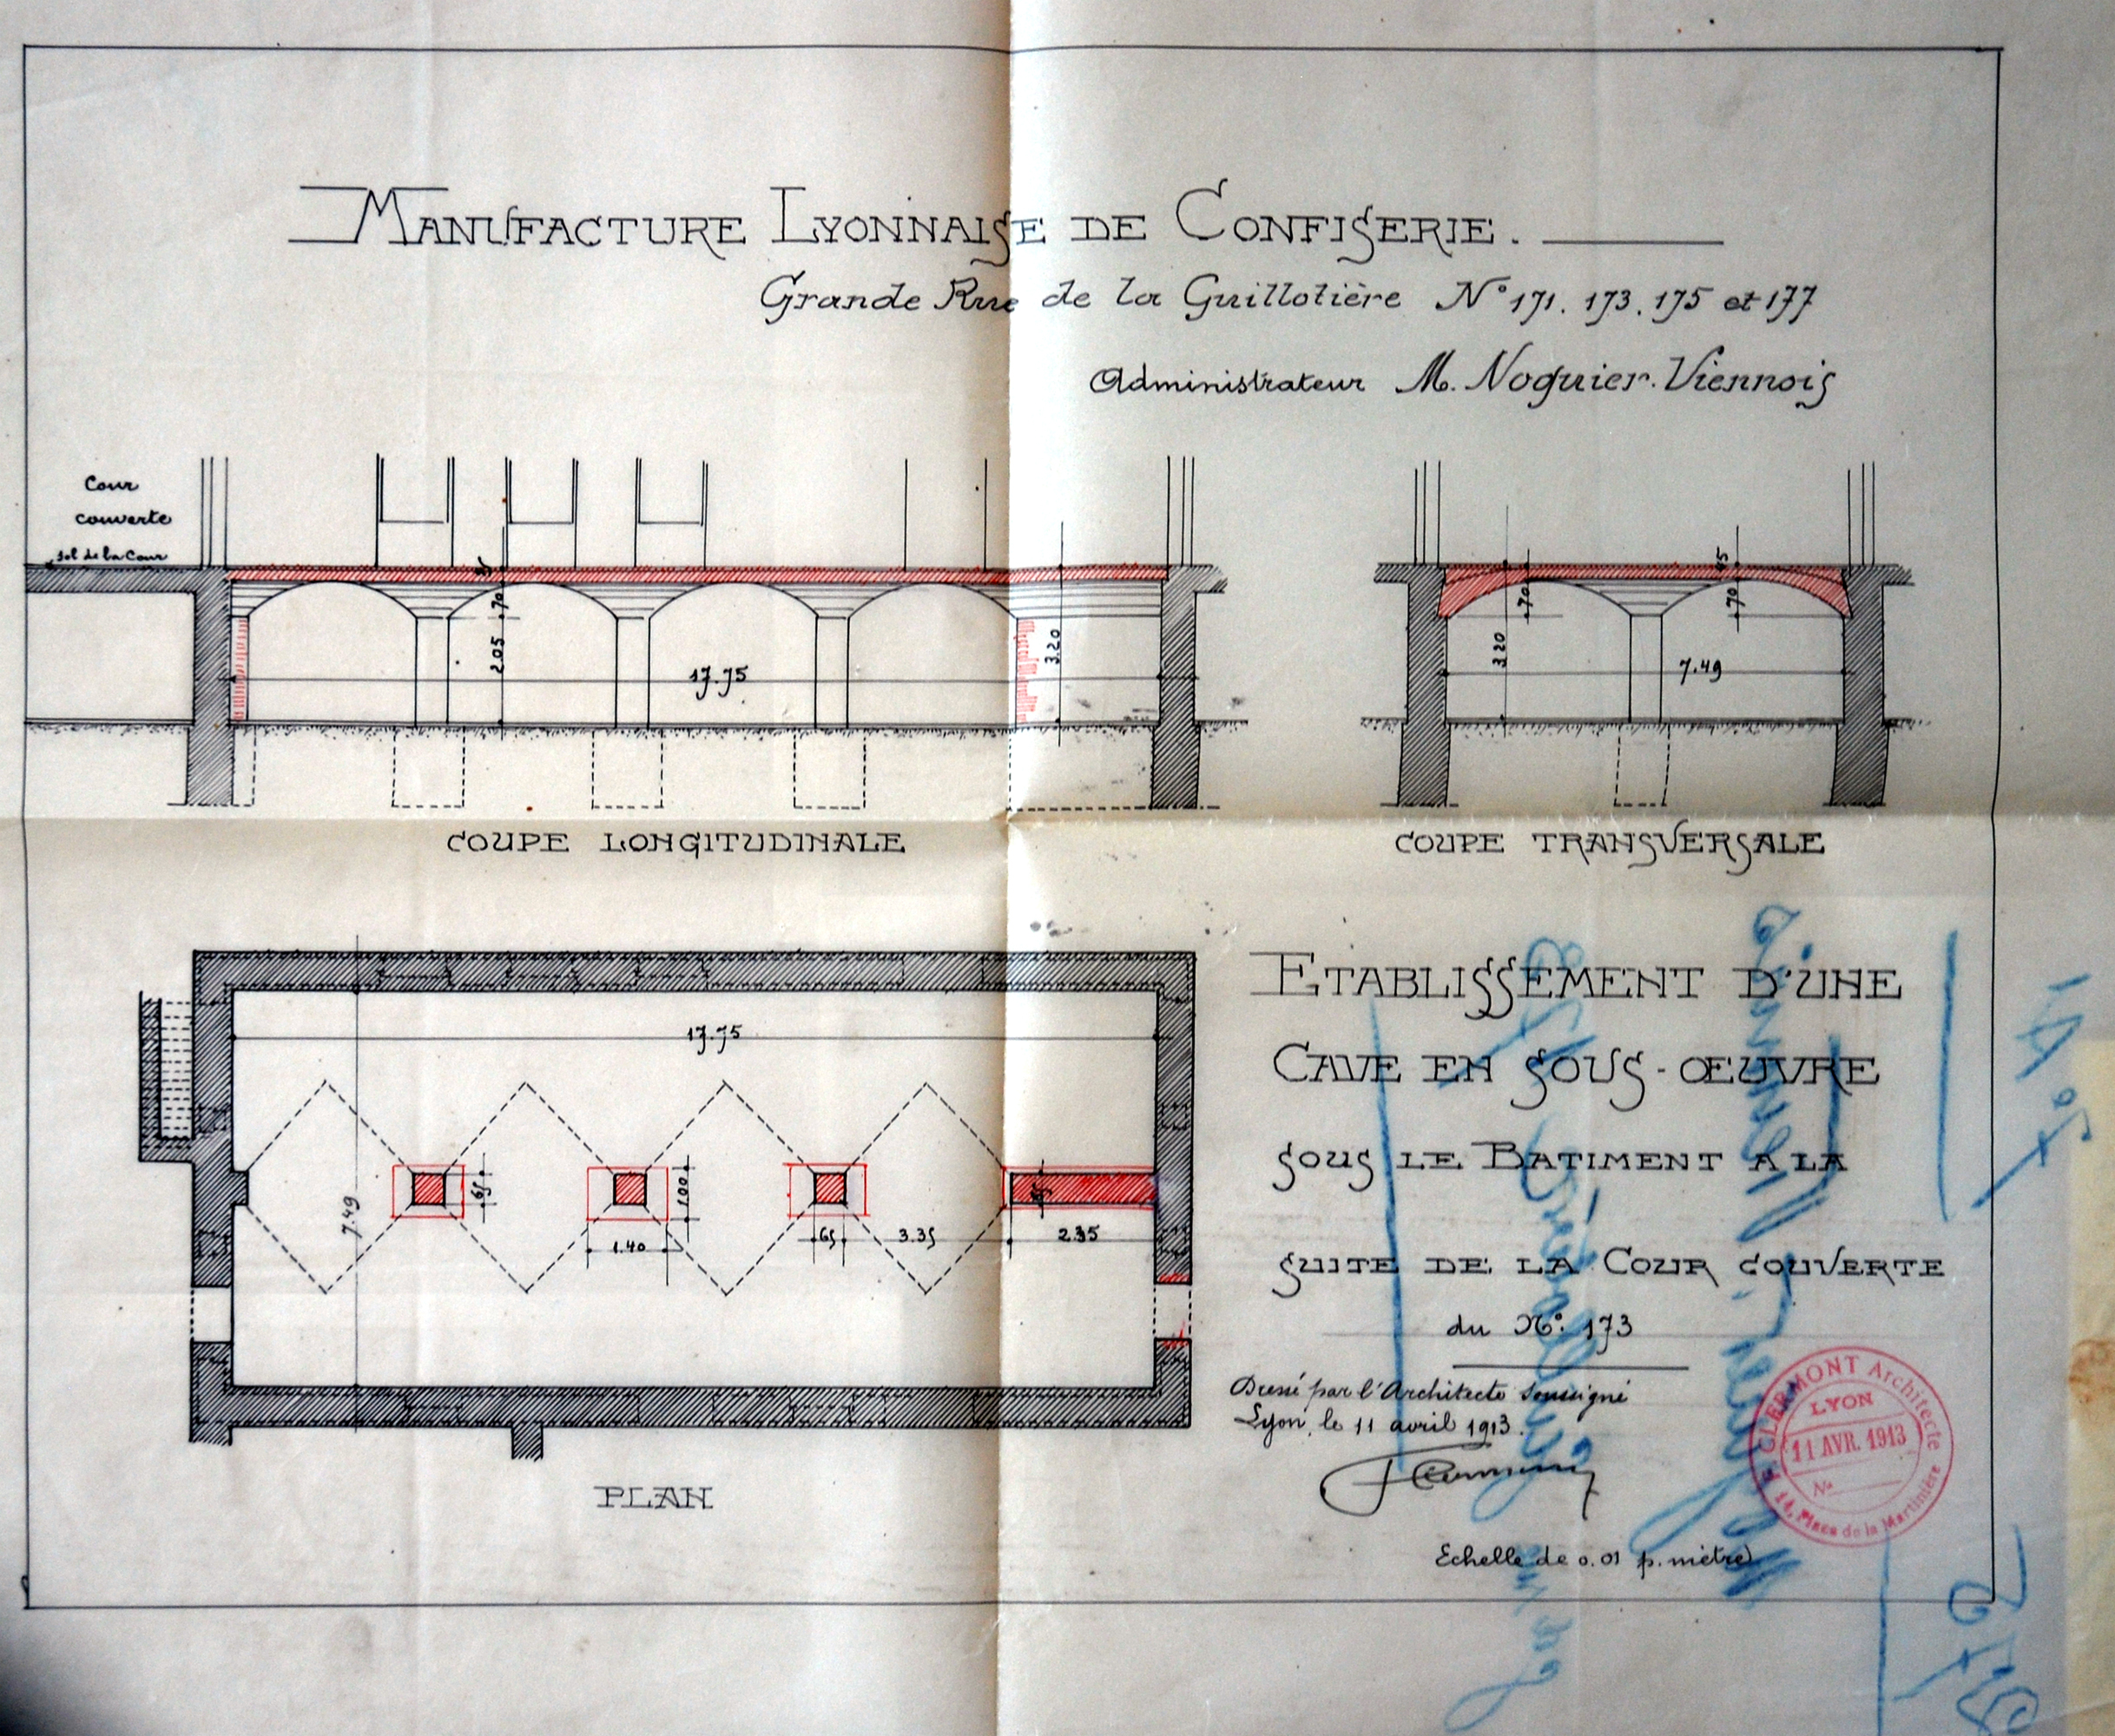 MANUFACTURE LYONNAISE DE CONFISERIE.
Grande Rue de la Guillotière N° 171. 173. 175 et 177
Administrateur M. Noguier-Viennois
Cour
couverte
sol de la Cour
.70
2.05
17.75
3.20
3.20
.70
.70
7.49
COUPE LONGITUDINALE
COUPE TRANSVERSALE
17.75
7.49
65
1.00
1.40
65
3.35
2.35
PLAN
ETABLISSEMENT D'UNE
CAVE EN SOUS-ŒUVRE
SOUS LE BATIMENT A LA
SUITE DE LA COUR COUVERTE
du N° 173
Dressé par l'Architecte soussigné
Lyon, le 11 avril 1913.
F. CLERMONT Architecte
LYON
11 AVR. 1913
No
14, Place de la Martinière
Echelle de 0.01 p. mètre